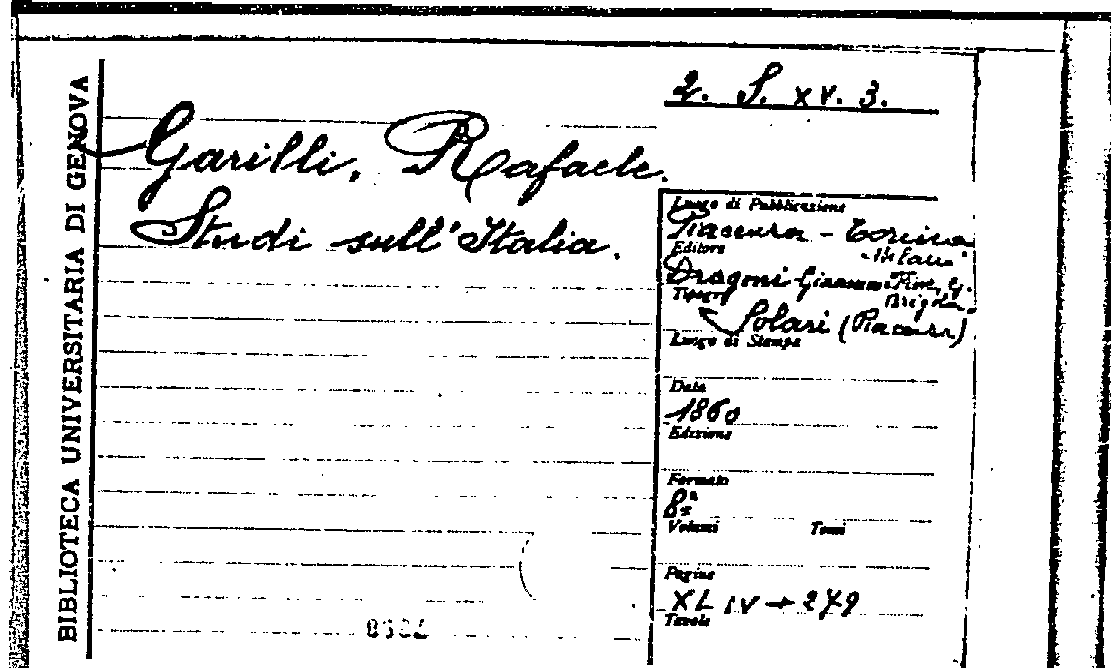 BIBLIOTECA UNIVERSITARIA DI GENOVA
2. S. XV. 3.
Garilli, Raffaele.
Studi sull'Italia.
Luogo di Pubblicazione
Piacenza - Torino
- Milano
Editore
Dragoni - Giannini Fiore, G.
Brigola.
Tipografo
Solari (Piacenza)
Luogo di Stampa
Data
1860
Edizione
Formato
8º
Volumi Tomi
Pagine
XLIV + 279
Tavole